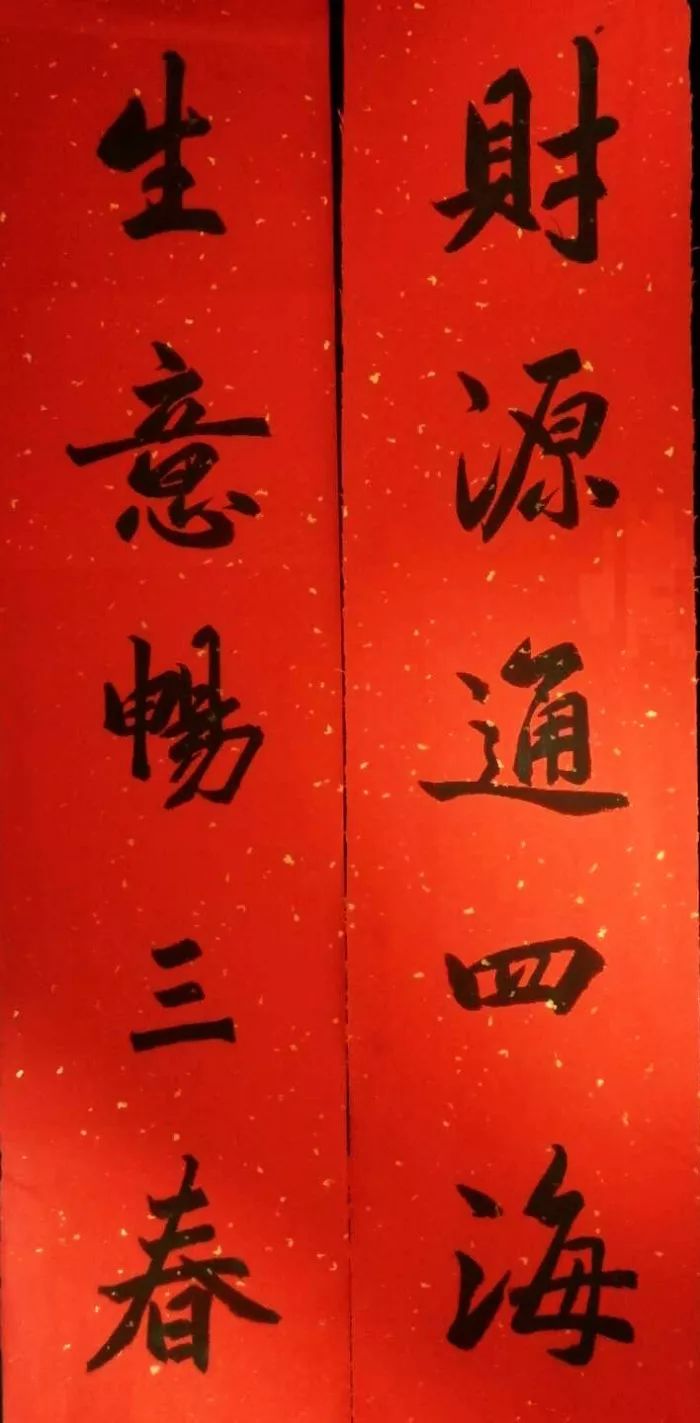 財源通四海
生意暢三春